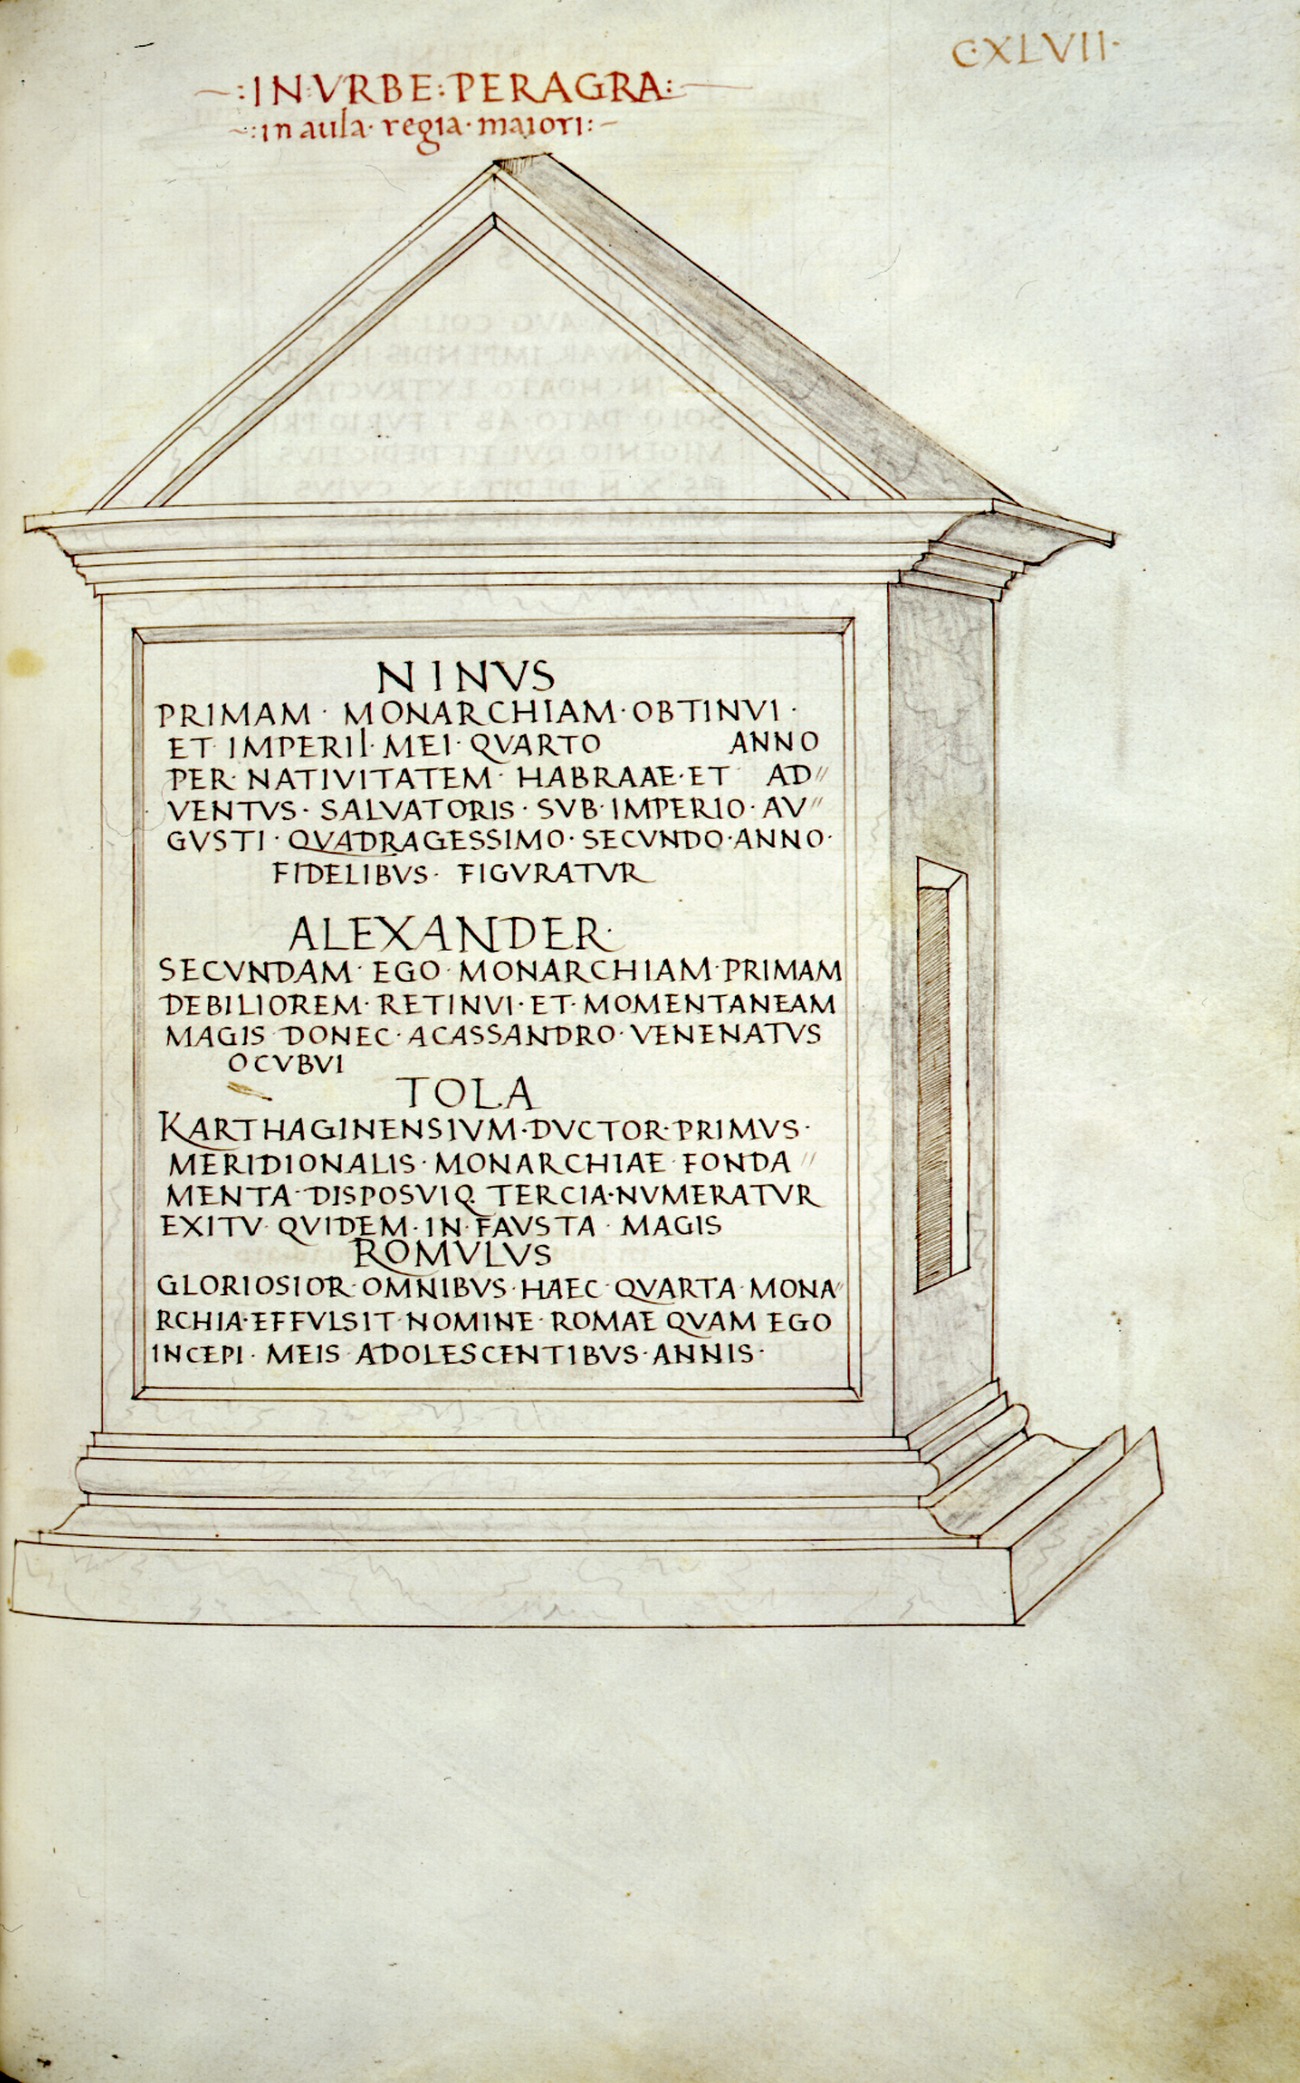 C·XLVII·
:IN:VRBE:PERAGRA:
:in aula· regia· maiori:
NINVS
PRIMAM · MONARCHIAM·OBTINVI ·
ET IMPERII· MEI· QVARTO ANNO
PER· NATIVITATEM· HABRAAE·ET AD//
VENTVS· SALVATORIS· SVB·IMPERIO· AV//
GVSTI· QVADRAGESSIMO· SECVNDO·ANNO·
FIDELIBVS· FIGVRATVR
ALEXANDER·
SECVNDAM· EGO· MONARCHIAM·PRIMAM
DEBILIOREM· RETINVI·ET· MOMENTANEAM
MAGIS DONEC· ACASSANDRO· VENENATVS
OCVBVI
TOLA
KARTHAGINENSIVM·DVCTOR·PRIMVS·
MERIDIONALIS· MONARCHIAE FONDA//
MENTA· DISPOSVIQ TERCIA·NVMERATVR
EXITV· QVIDEM· IN· FAVSTA · MAGIS
ROMVLVS
GLORIOSIOR· OMNIBVS·HAEC· QVARTA· MONA//
RCHIA·EFFVLSIT·NOMINE· ROMAE QVAM EGO
INCEPI· MEIS ADOLESCENTIBVS·ANNIS·